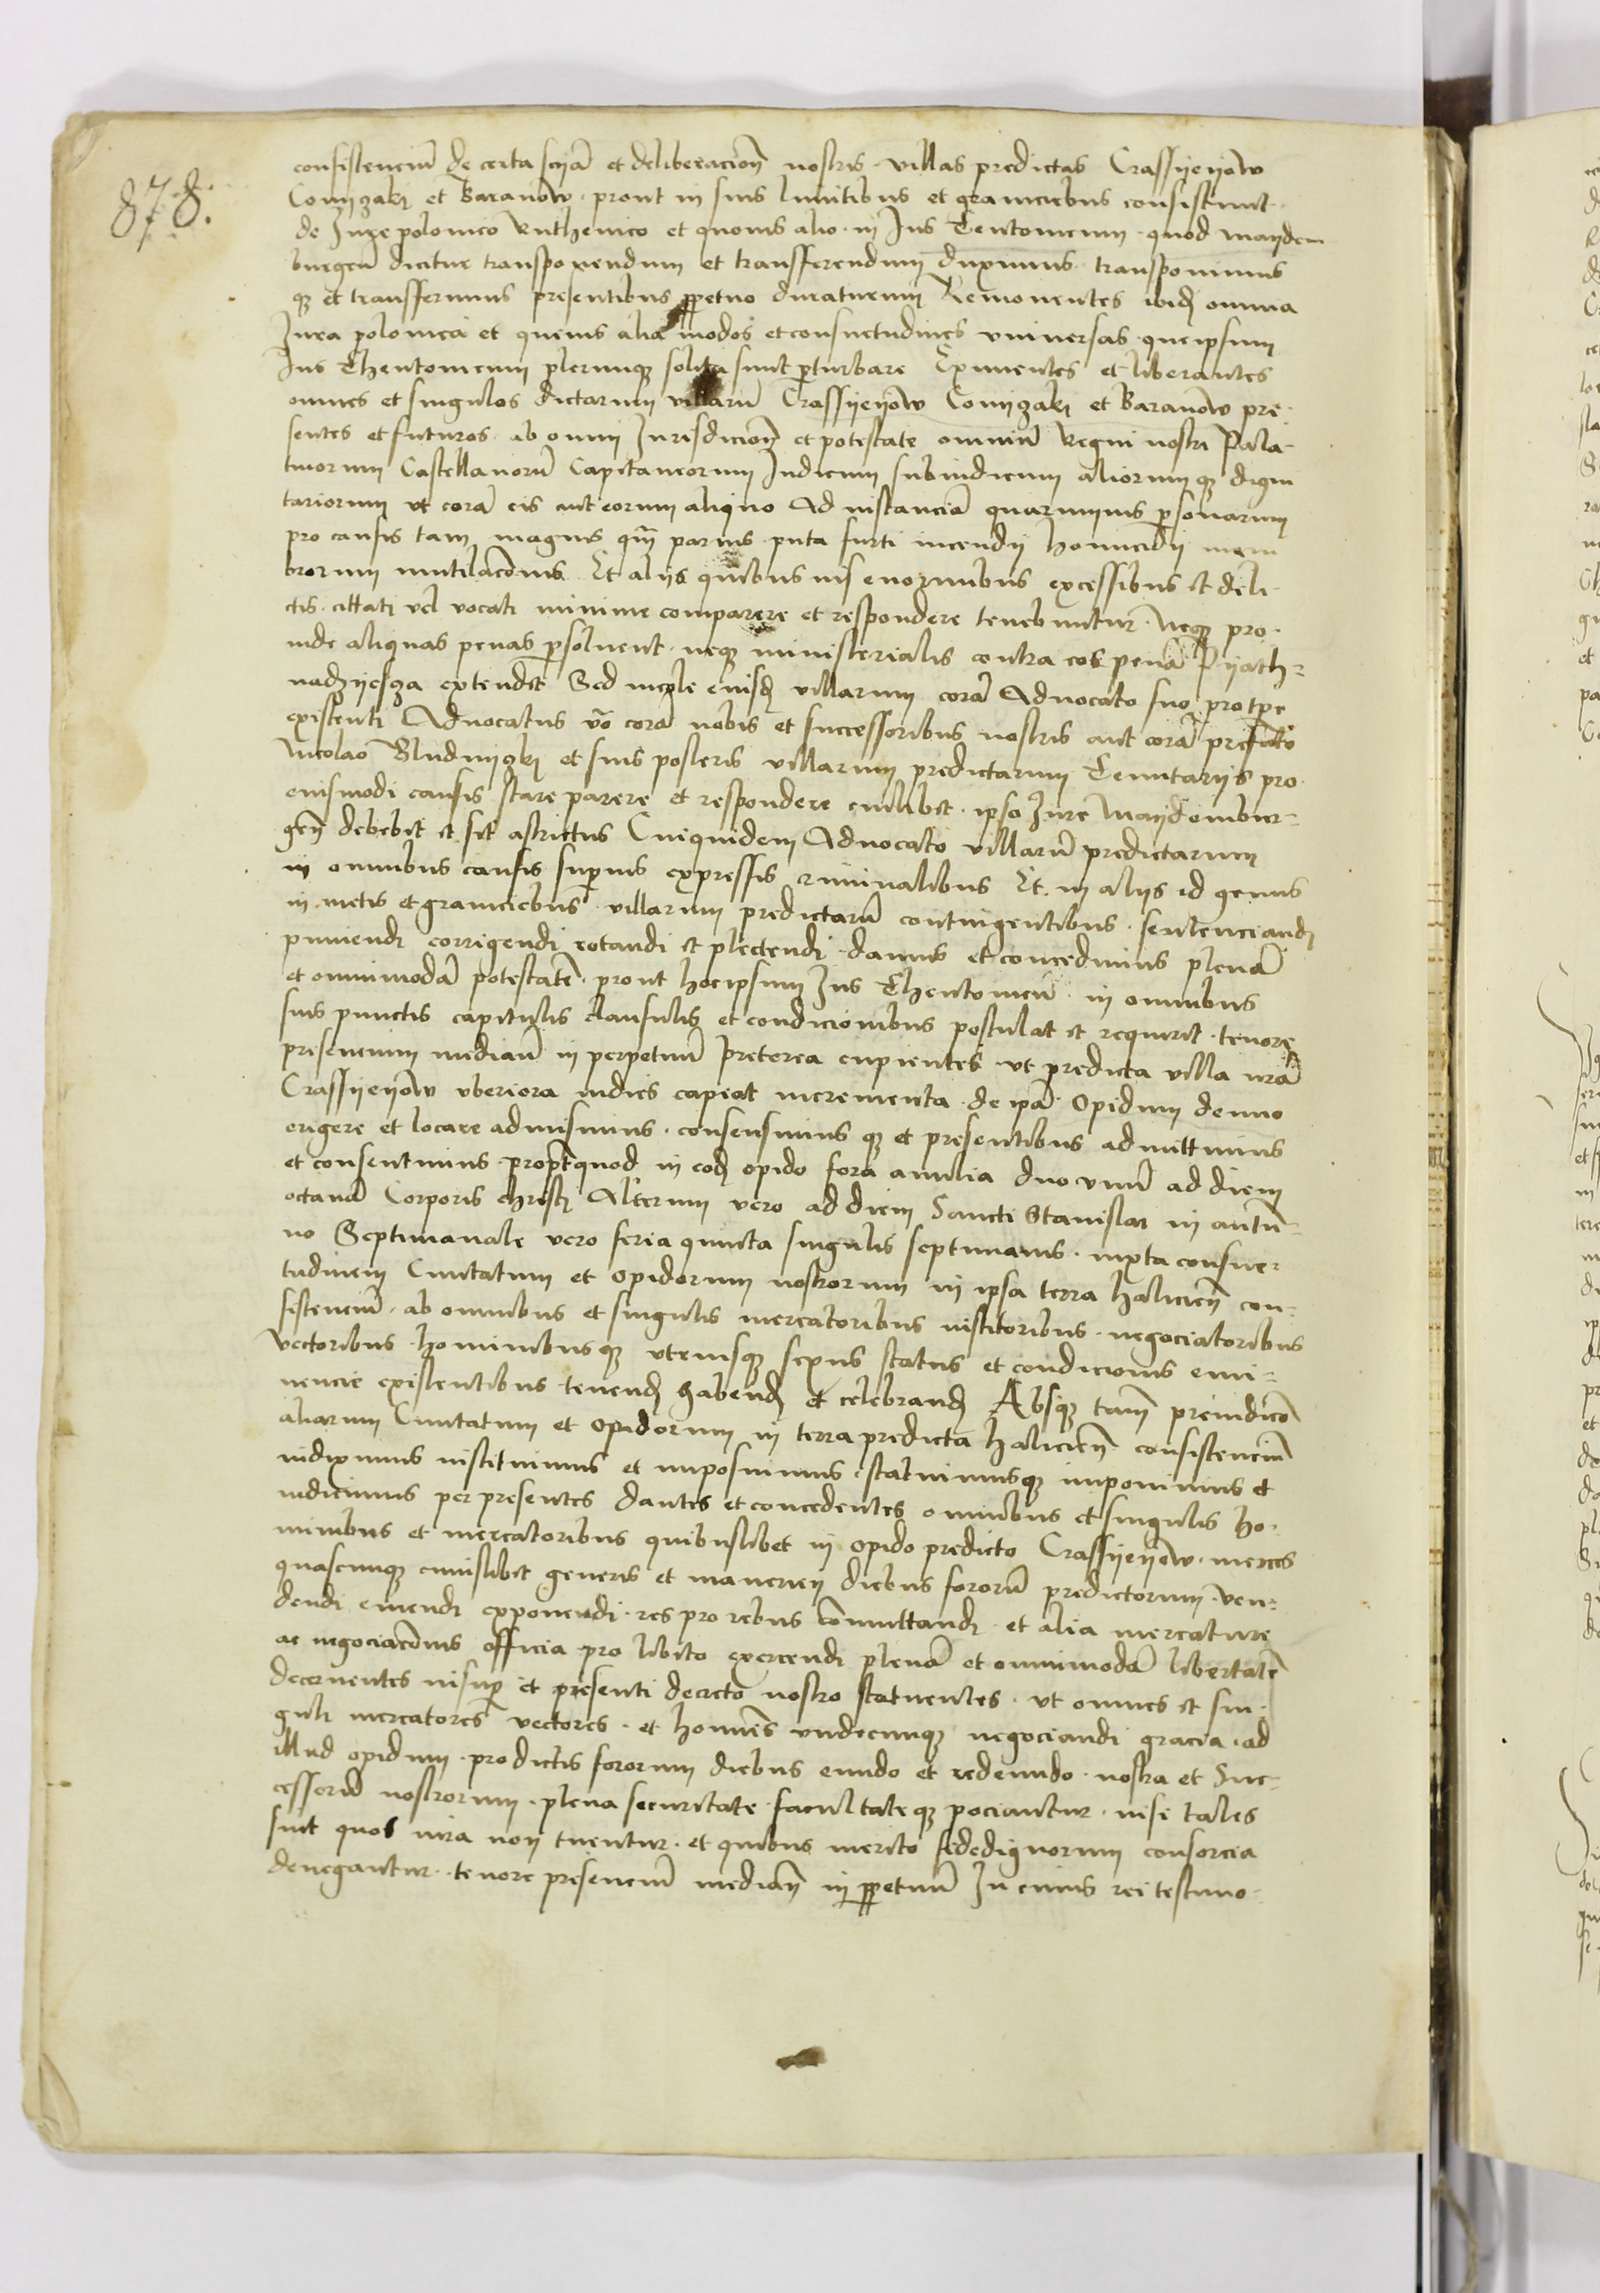 878.
consistenciũ de certa sciã et deliberacioñ nostris villas predictas Crassyeyow
Conyzaky et Baranow prout in suis limitibus et graniciebus consistunt
de Jure polonico Ruthenico et quovis alio in Jus Teutonicum quod maydem
burgeñ dicitur transponendum et transferendum duximus transponimus
q3 et transferimus presentibus ppetuo duraturum Removentes ibidē omnia
Jura polonica et quevis alia modos et consuetudines universas que ipsum
Jus Theutonicum plerumq3 solita sunt pturbare Eximentes et liberantes
omnes et singulos dictarum villarū Crassyeyow Conyzaky et Baranow pre
sentes et futuros ab omni Jurisdicioñ et potestate omniũ Regni nostri Pala-
tinorum Castellanorũ Capitaneorum Judicum subiudicum aliorumq3 digni
tariorum ut corã eis aut eorum aliquo Ad instanciã quarumvis psonarum
pro causis tam magnis q̃ parvis puta furti incendij homicidij mem
brorum mutilacõnis Et alijs quibusvis enormibus excessibus et deli-
ctis citati vel vocati minime comparere et respondere tenebuntur neq3 pro-
inde aliquas penas psolvent neq3 ministerialis contra eos penã Pyath-
nadzyesza extendet Sed incole eiusdē villarum corã Advocato suo pro tpe
existenti Advocatus vo corã nobis et successoribus nostris aut corã prefato
Nicolao Bludnyzky et suis posteris villarum predictarum Tenutarijs pro
eiusmodi causis stare parere et respondere cuilibet ipso Jure maydembur-
geñ debebit et sit astrictus Cuiquidem Advocato villarũ predictarum
in omnibus causis supius expressis criminalibus Et in alijs id genus
in metis et graniciebus villarum predictarũ contingentibus sentenciandi
puniendi corrigendi rotandi et plectendi damus et concedimus plenã
et omnimodã potestatē prout hoc ipsum Jus Theutonicũ in omnibus
suis punctis capitulis clausulis et condicionibus postulat et requirit tenore
presencium mediañ in perpetuũ Preterea cupientes ut predicta villa nrã
Crassyeyow uberiora indies capeat incrementa de ipã Opidum denuo
erigere et locare admisimus consensimus q3 et presentibus admittimus
et consentimus proptquod in eodē opido fora annalia duo unũ ad diem
octavã Corporis christi Alterum vero ad diem Sancti Stanislai in autũ-
no Septimanale vero feria quinta singulis septimanis iuxta consue-
tudinem Civitatum et Opidorum nostrorum in ipsa terra halicieñ con-
sistenciũ ab omnibus et singulis mercatoribus institoribus negociatoribus
vectoribus hominibusq3 utriusq3 sexus status et condicionis emi-
nencie existentibus tenendē habendē et celebrandē Absq3 tamē preiudico
aliarum Civitatum et Opidorum in terra predicta halicieñ consistenciũ
indiximus instituimus et imposuimus statuimusq3 imponimus et
indicimus per presentes dantes et concedentes omnibus et singulis ho-
minibus et mercatoribus quibuslibet in opido predicto Crassyeyow merces
quascunq3 cuiuslibet generis et maneriei diebus fororũ predictorum ven-
dendi emendi exponendi res pro rebus comuttandi et alia mercature
ac negociacõnis officia pro libito exercendi plenã et omnimodã libertatē
decernentes insup et presenti decreto nostro statuentes ut omnes et sin-
guli mercatores vectores et homines undecunq3 negociandi gracia ad
illud opidum pro dictis fororum diebus eundo et redeundo nostra et Suc-
cessorũ nostrorum plena securitate facultateq3 pociantur nisi tales
sint quos iura non tuentur et quibus merito fidedignorum consorcia
denegantur tenore presenciũ mediañ in ppetuũ In cuius rei testimo-